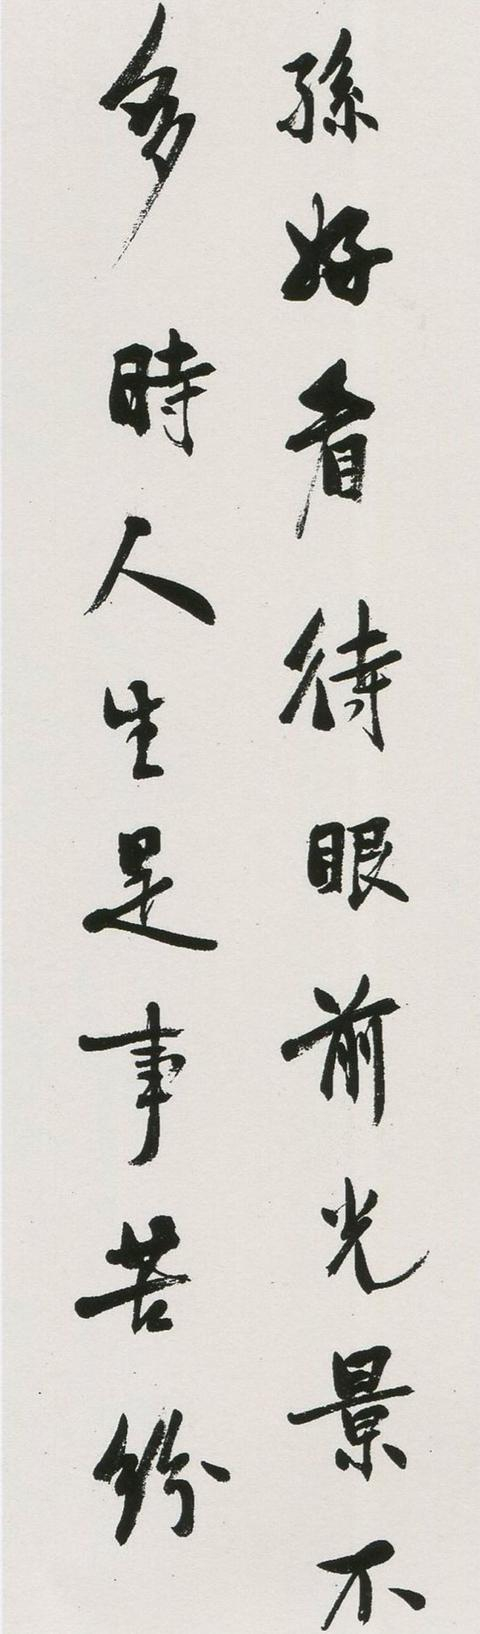 孫好看待眼前光景不
多時人生是事苦紛